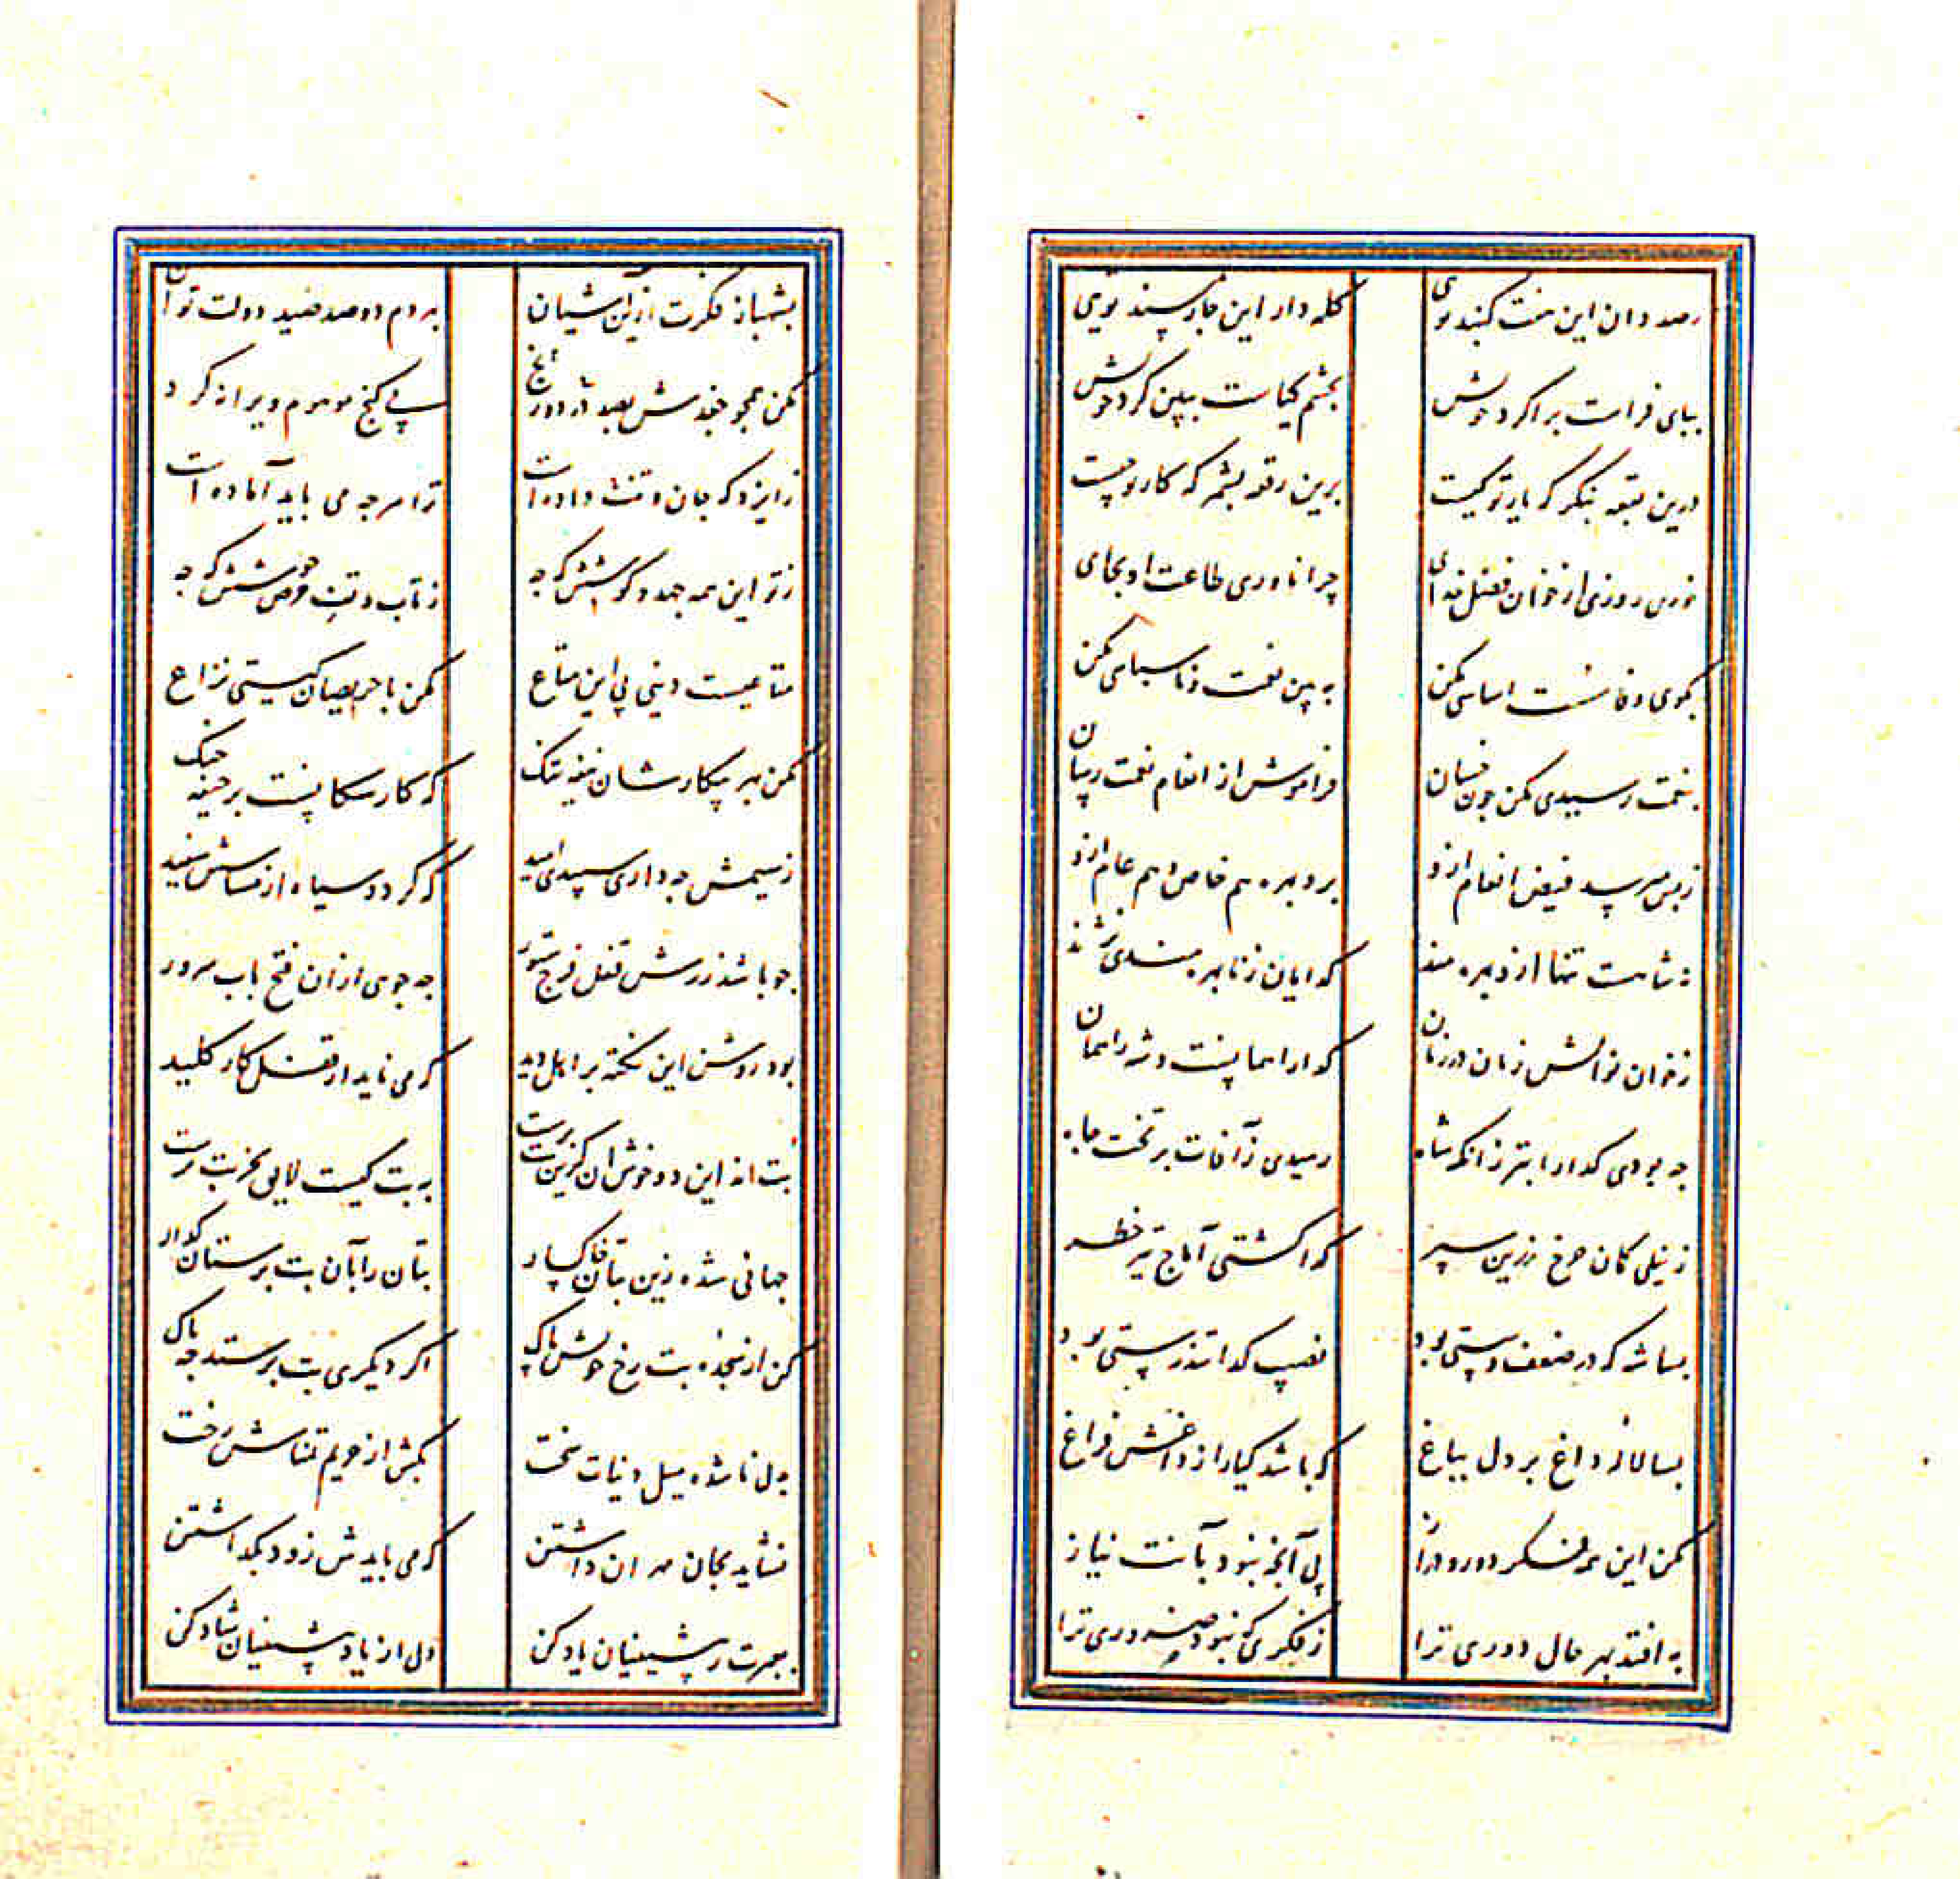 رصد دان این هفت گنبد توی کله دار این چار مسند تویی
بپای فراست برا کرد خویش بچشم کیاست ببین کرد خویش
درین بقعه بنکر که یار تو کیست برین رقعه بشمر که کار تو چیست
خوری روزی از خوان فضل خدای چرا ناوری طاعت او بجای
بکوی وفا سست اساسی مکن ببین نعمت و ناسپاسی مکن
بنعمت رسیدی مکن چون خسان فراموش از انعام نعمت رسان
ز بس میرسد فیض انعام ازو برد بهره هم خاص و هم عام ازو
نه شاهست تنها ازو بهره مند کدایان ز نا بهره مندی نژند
ز خوان نوالش زمان در زمان کدا را هماپنست و شه را همان
چه بودی کدا را بتر زانکه شاه رمیدی ز آفات بر تخت جاه
ز نیلی کمان چرخ زرین سپر کدا کشتی آماج تیر خطر
بسا شه که در ضعف و پستی بود نصیب کدا تندرستی بود
بسا لاله داغ بر دل بباغ که باشد کیا را ز داغش فراغ
مکن این همه فکر دور و دراز پی آنچه نبود بآنت نیاز
به افتد بهر حال دوری ترا ز فکری که نبود ضروری ترا
بشهباز فکرت ازین آشیان بهر دم دو صد صید دولت توان
مکن همچو جغدش بصد درد و رنج پی کنج موهوم ویرانه کرد
ز ایزد که جان و تنت داده است ترا هر چه می باید آماده است
ز تو این همه جهد و کوشش که چه ز تاب و تب حرص جوشش که چه
متاعیست دنیی پی این متاع مکن با حریصان کیتی نزاع
مکن بهر پیکارشان سینه تنک که کار سکانست بر جیفه جنک
ز سیمش چه داری سپیدی امید که کردد سیاه از مساسش سفید
چو باشد زرش قفل فرج ستور چه جوی از ان فتح باب سرور
بود روشن این نکته بر اهل دید که می ناید از قفل کار کلید
بت اند این دو خوش آن کزین بت برست به بت کیست لایق بجز بت پرست
جهانی شده زین بتان خاکسار بتان را بآن بت پرستان کذار
کن از سجده بت رخ خویش پاک اکر دیکری بت پرستد چه باک
بدل تا شده میل دنیات سخت بکش از حریم تمناش رخت
نشاید بجان مهر ان داشتن که می بایدش زود بکذاشتن
بعبرت ز پیشینیان یاد کن دل از یاد پیشینیان شاد کن